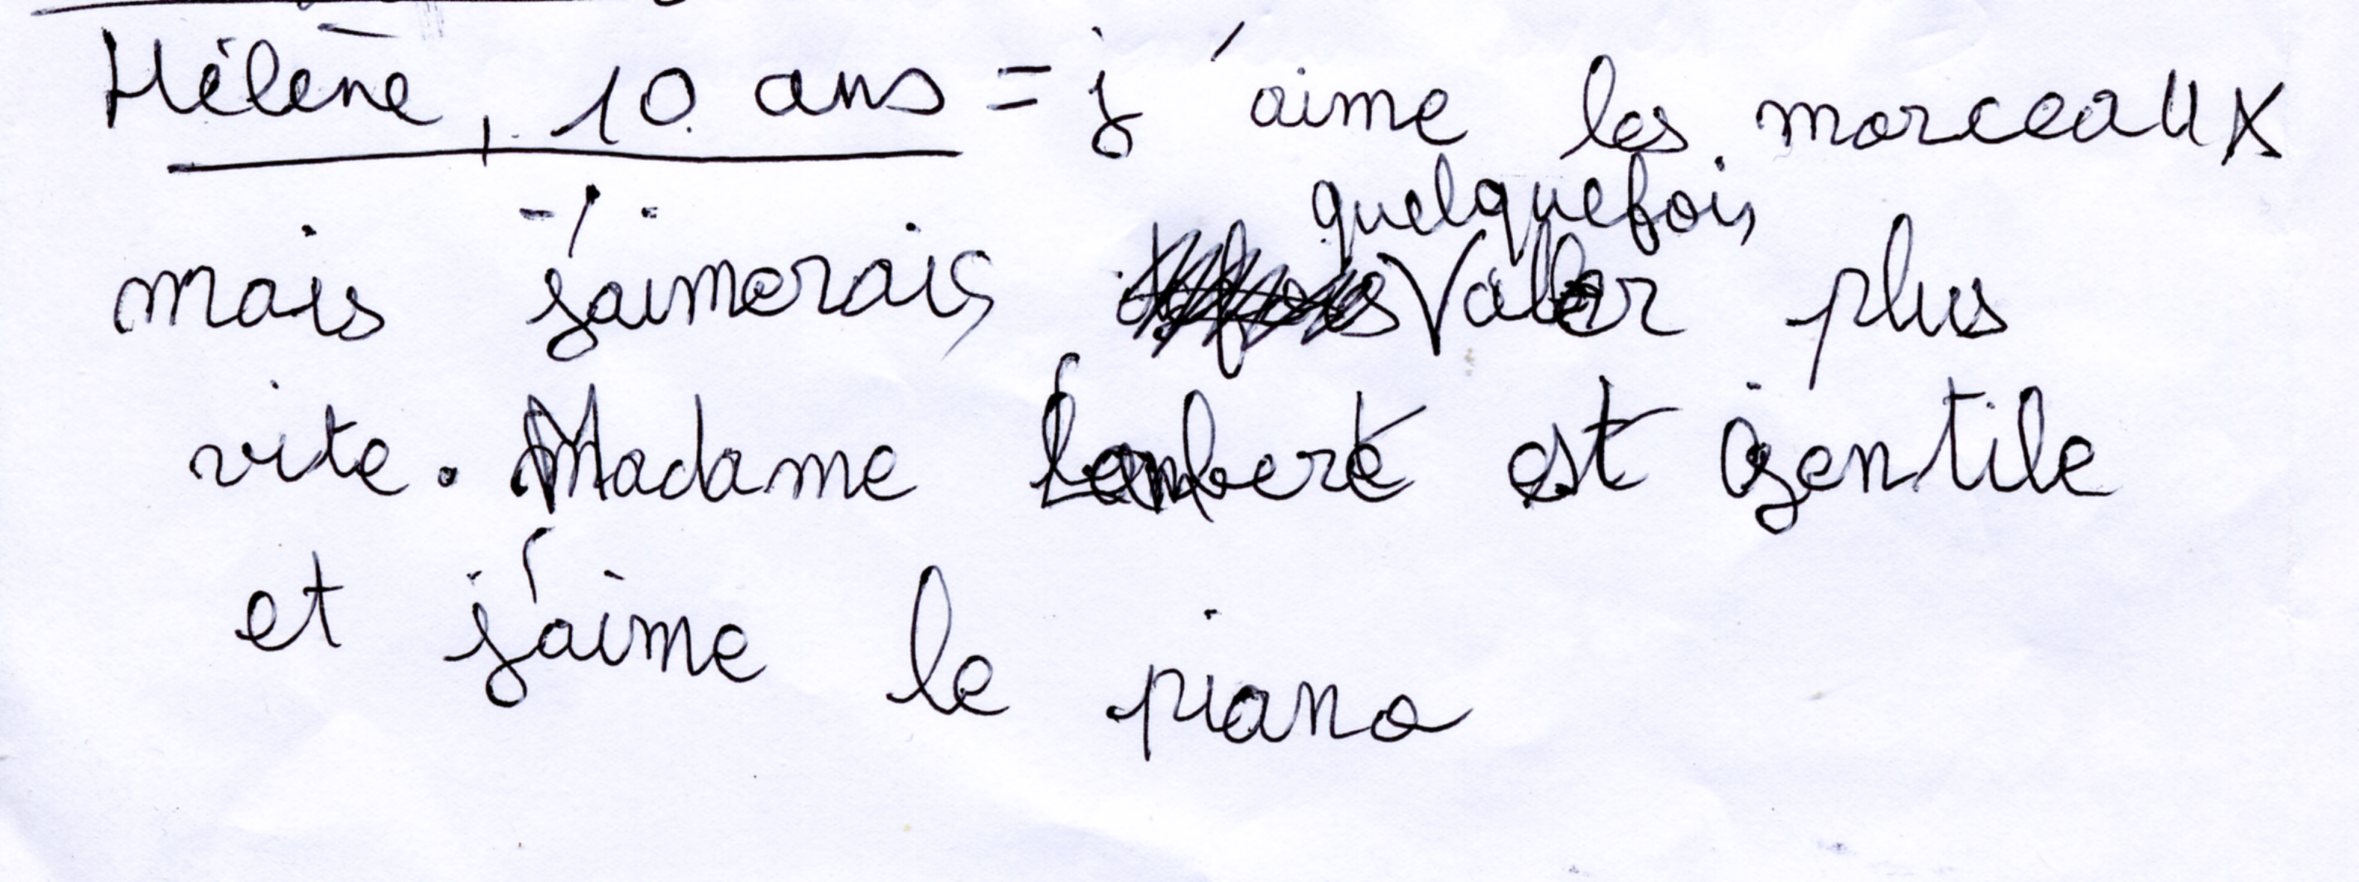 Hélène, 10 ans = j'aime les morceaux
quelquefois
mais j'aimerais V aller plus
vite. Madame Lambert est gentile
et j'aime le piano